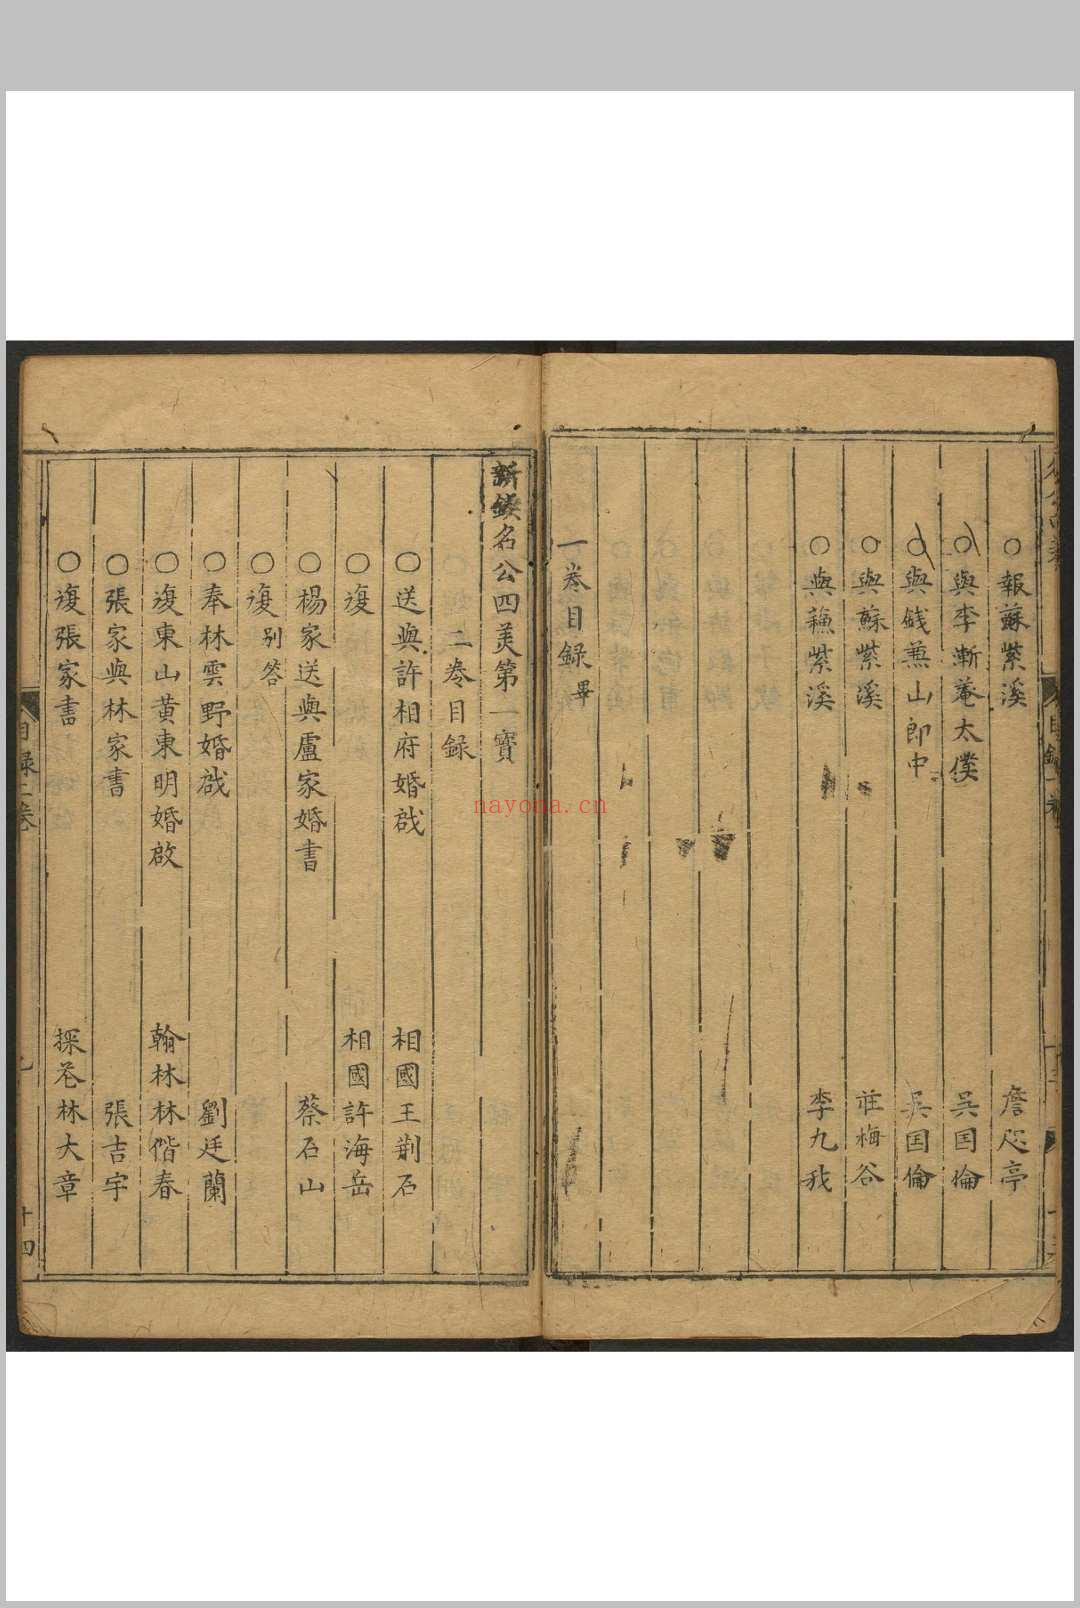 ○報蘇紫溪 詹咫亭
○與李漸菴太僕 吳国倫
○與錢蕙山郎中 吳国倫
○與蘇紫溪 莊梅谷
○與蘇紫溪 李九我
一卷目録畢
新鍥名公四美第一寶
二卷目録
○送與許相府婚啟 相國王荆石
○復 相國許海岳
○楊家送與盧家婚書 蔡石山
○復別答
○奉林雲野婚啟 劉廷蘭
○復東山黄東明婚啟 翰林林偕春
○張家與林家書 張吉宇
○復張家書 探花林大章
目録二卷
十四
nayona.cn